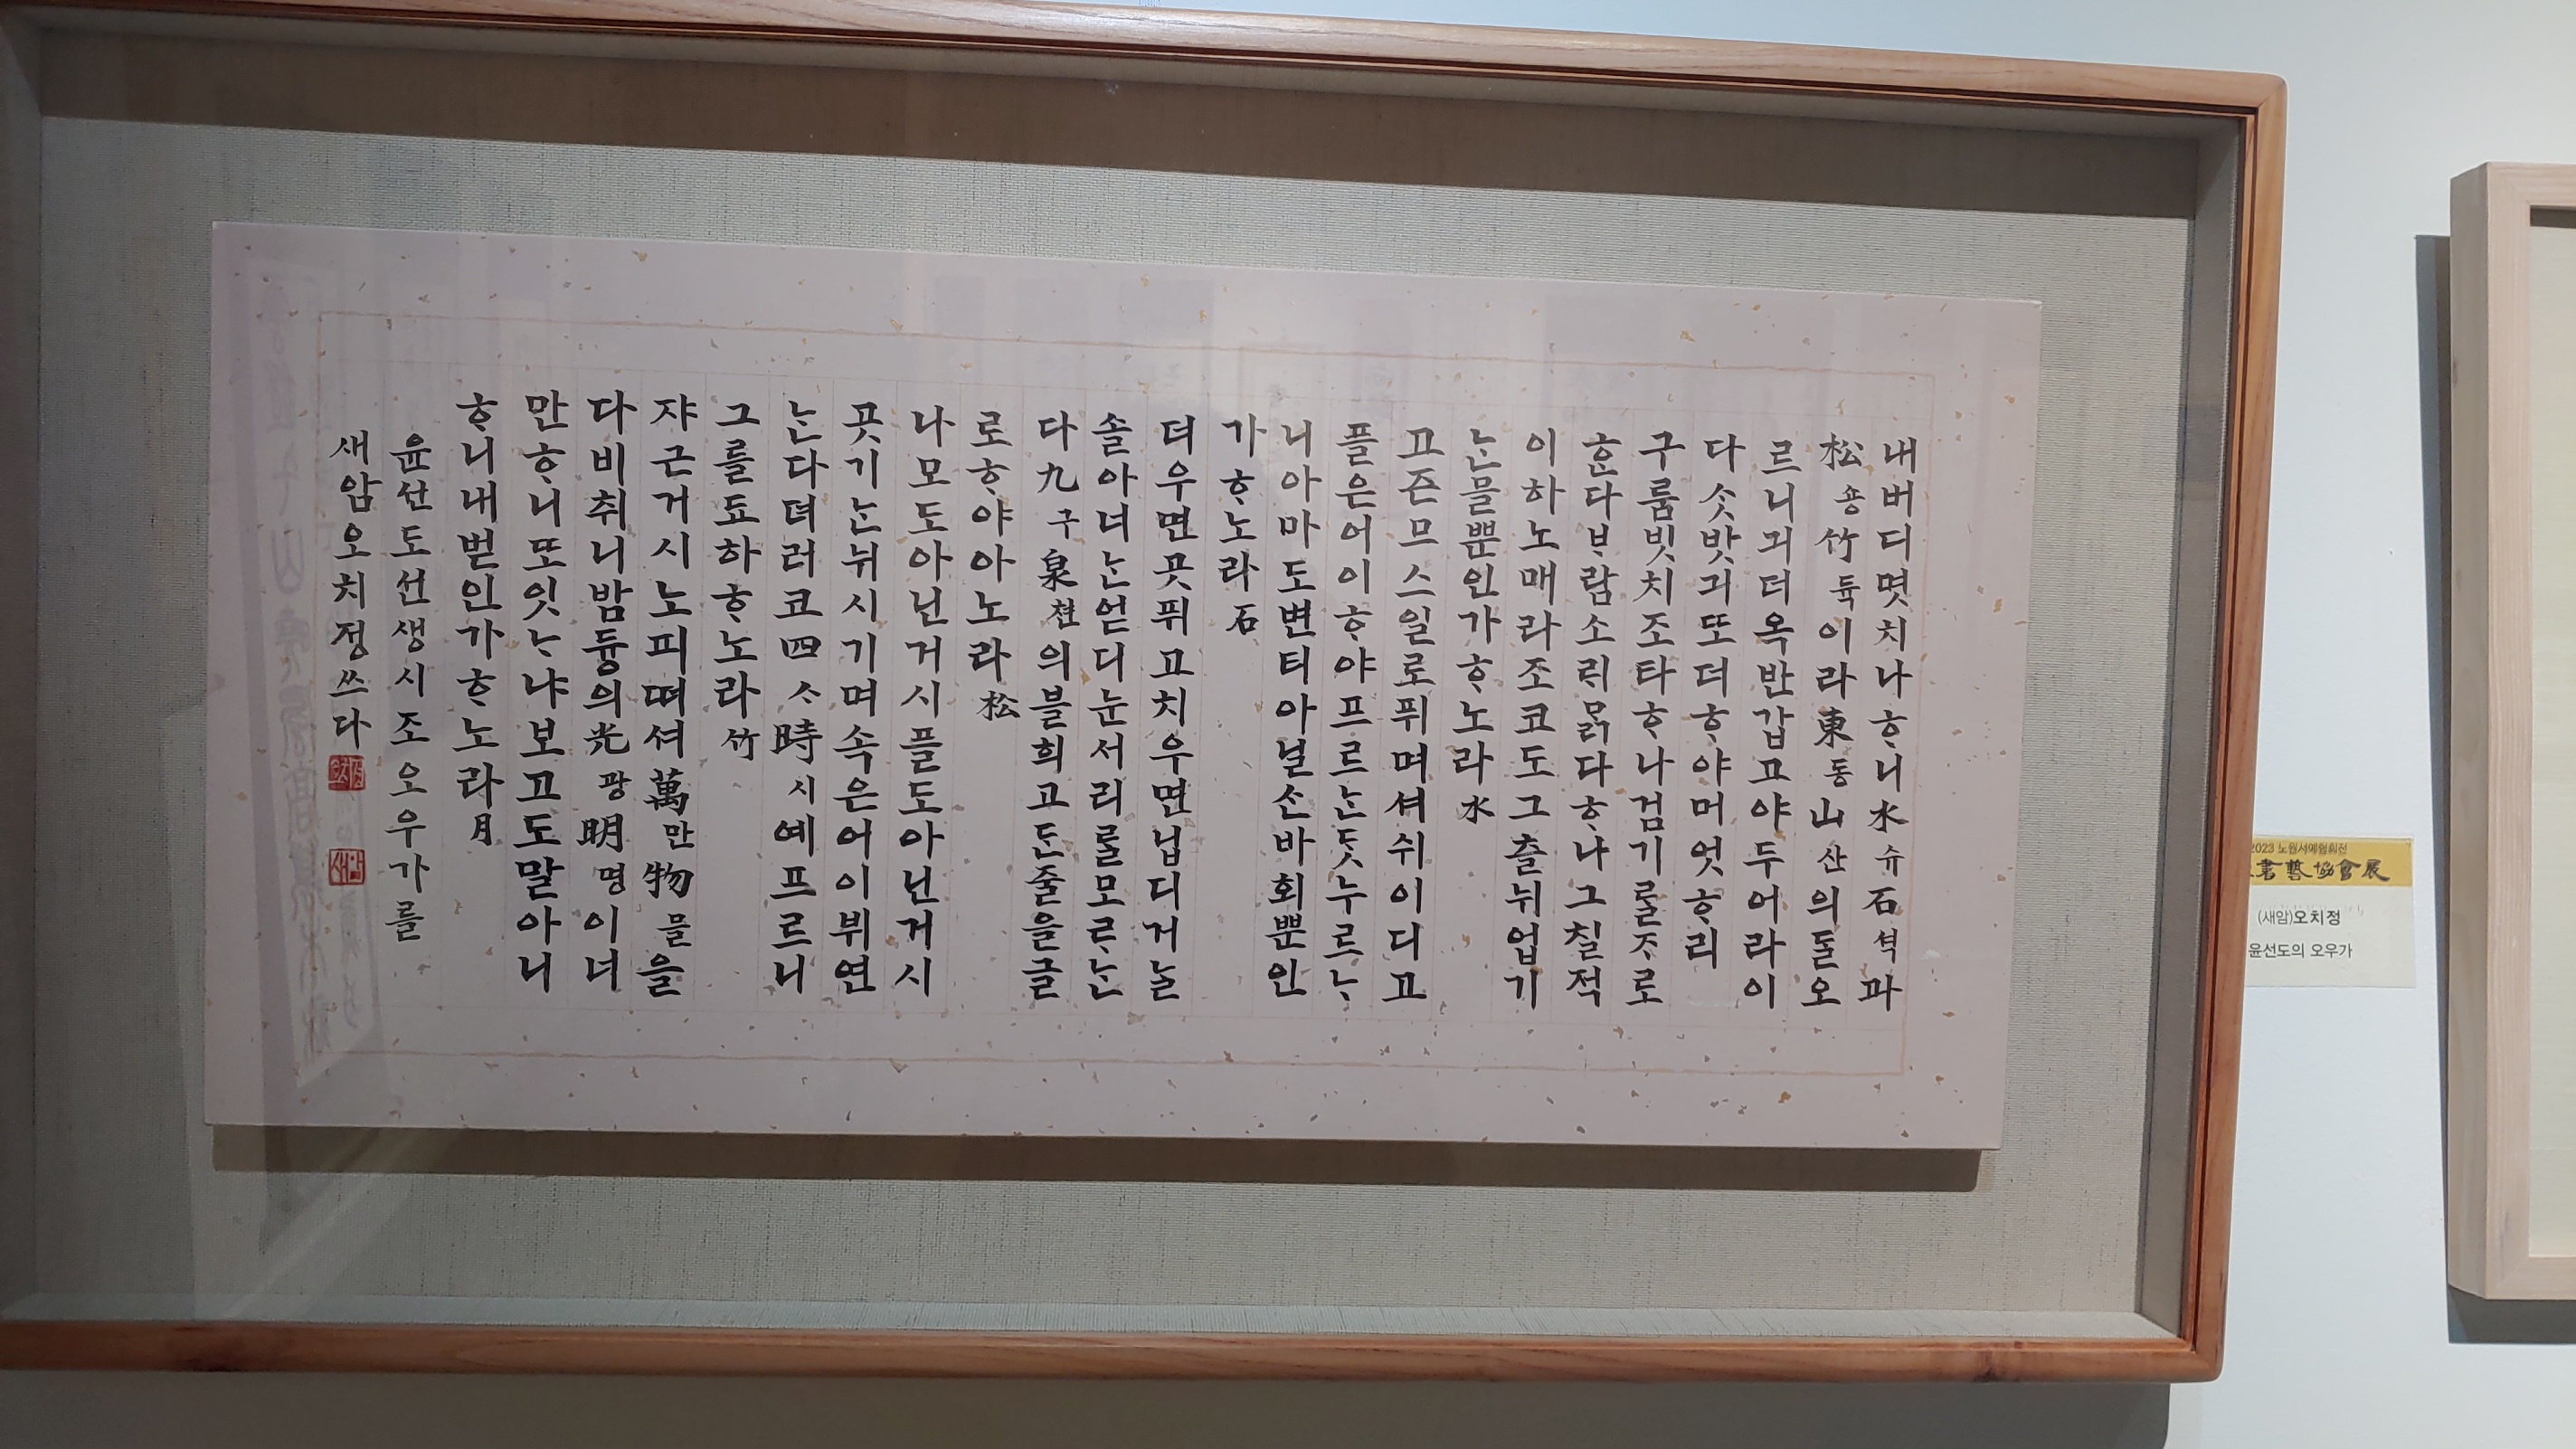 내버디몃치나ᄒᆞ니水슈石셕과
松숑竹듁이라東동山산의ᄃᆞᆯ오
르니긔더옥반갑고야두어라이
다ᄉᆞᆺ밧긔또더ᄒᆞ야머엇ᄒᆞ리
구룸빗치조타ᄒᆞ나검기ᄅᆞᆯᄌᆞ로
ᄒᆞᆫ다ᄇᆞ람소ᄅᆡᄆᆞᆰ다ᄒᆞ나그칠적
이하노매라조코도그츨뉘업기
ᄂᆞᆫ믈뿐인가ᄒᆞ노라水
고즌므스일로퓌며셔쉬이디고
플은어이ᄒᆞ야프르ᄂᆞᆫᄃᆞᆺ누르ᄂᆞ
니아마도변티아닐ᄉᆞᆫ바회뿐인
가ᄒᆞ노라石
뎌우면곳퓌고치우면닙디거ᄂᆞᆯ
솔아너ᄂᆞᆫ얻디눈서리ᄅᆞᆯ모ᄅᆞᄂᆞᆫ
다九구泉쳔의블희고ᄃᆞᆫ줄을글
로ᄒᆞ야아노라松
나모도아닌거시플도아닌거시
곳기ᄂᆞᆫ뉘시기며속은어이뷔연
ᄂᆞᆫ다뎌러코四ᄉᆞ時시예프르니
그를됴하ᄒᆞ노라竹
쟈근거시노피떠셔萬만物믈을
다비취니밤듕의光광明명이너
만ᄒᆞ니또잇ᄂᆞ냐보고도말아니
ᄒᆞ니내벋인가ᄒᆞ노라月
윤선도선생시조오우가를
새암오치정쓰다
2023 노원서예협회전
書藝協會展
(새암)오치정
윤선도의 오우가